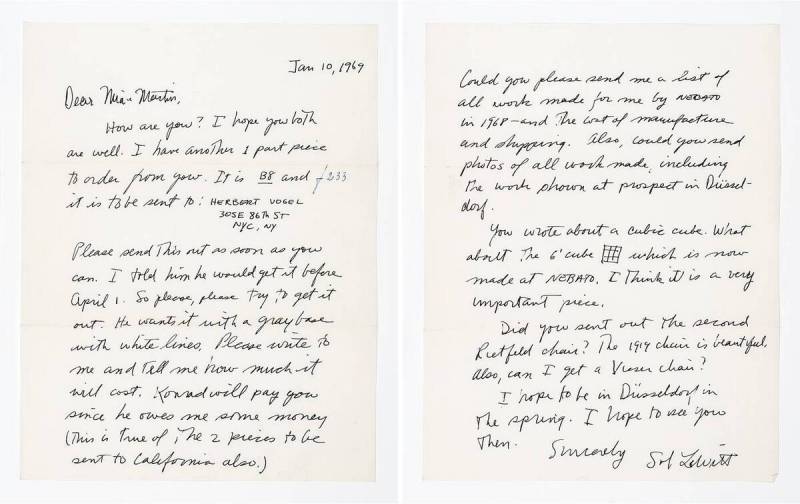 Jan 10, 1969
Dear Mia & Martin,
How are you? I hope you both
are well. I have another 1 part piece
to order from you. It is B8 and f 233
it is to be sent to: HERBERT VOGEL
305E 86th ST
NYC, NY
Please send this out as soon as you
can. I told him he would get it before
April 1. So please, please try to get it
out. He wants it with a gray base
with white lines. Please write to
me and tell me how much it
will cost. Konrad will pay you
since he owes me some money
(This is true of the 2 pieces to be
sent to California also.)
Could you please send me a list of
all work made for me by NEBATO
in 1968 - and the cost of manufacture
and shipping. Also, could you send
photos of all work made, including
the work shown at prospect in Düssel-
dorf.
You wrote about a cubic cube. What
about the 6' cube which is now
made at NEBATO. I think it is a very
important piece.
Did you sent out the second
Rietfeld chair? The 1919 chair is beautiful.
Also, can I get a Visser chair?
I hope to be in Düsseldorf in
the spring. I hope to see you
then.
Sincerely Sol LeWitt